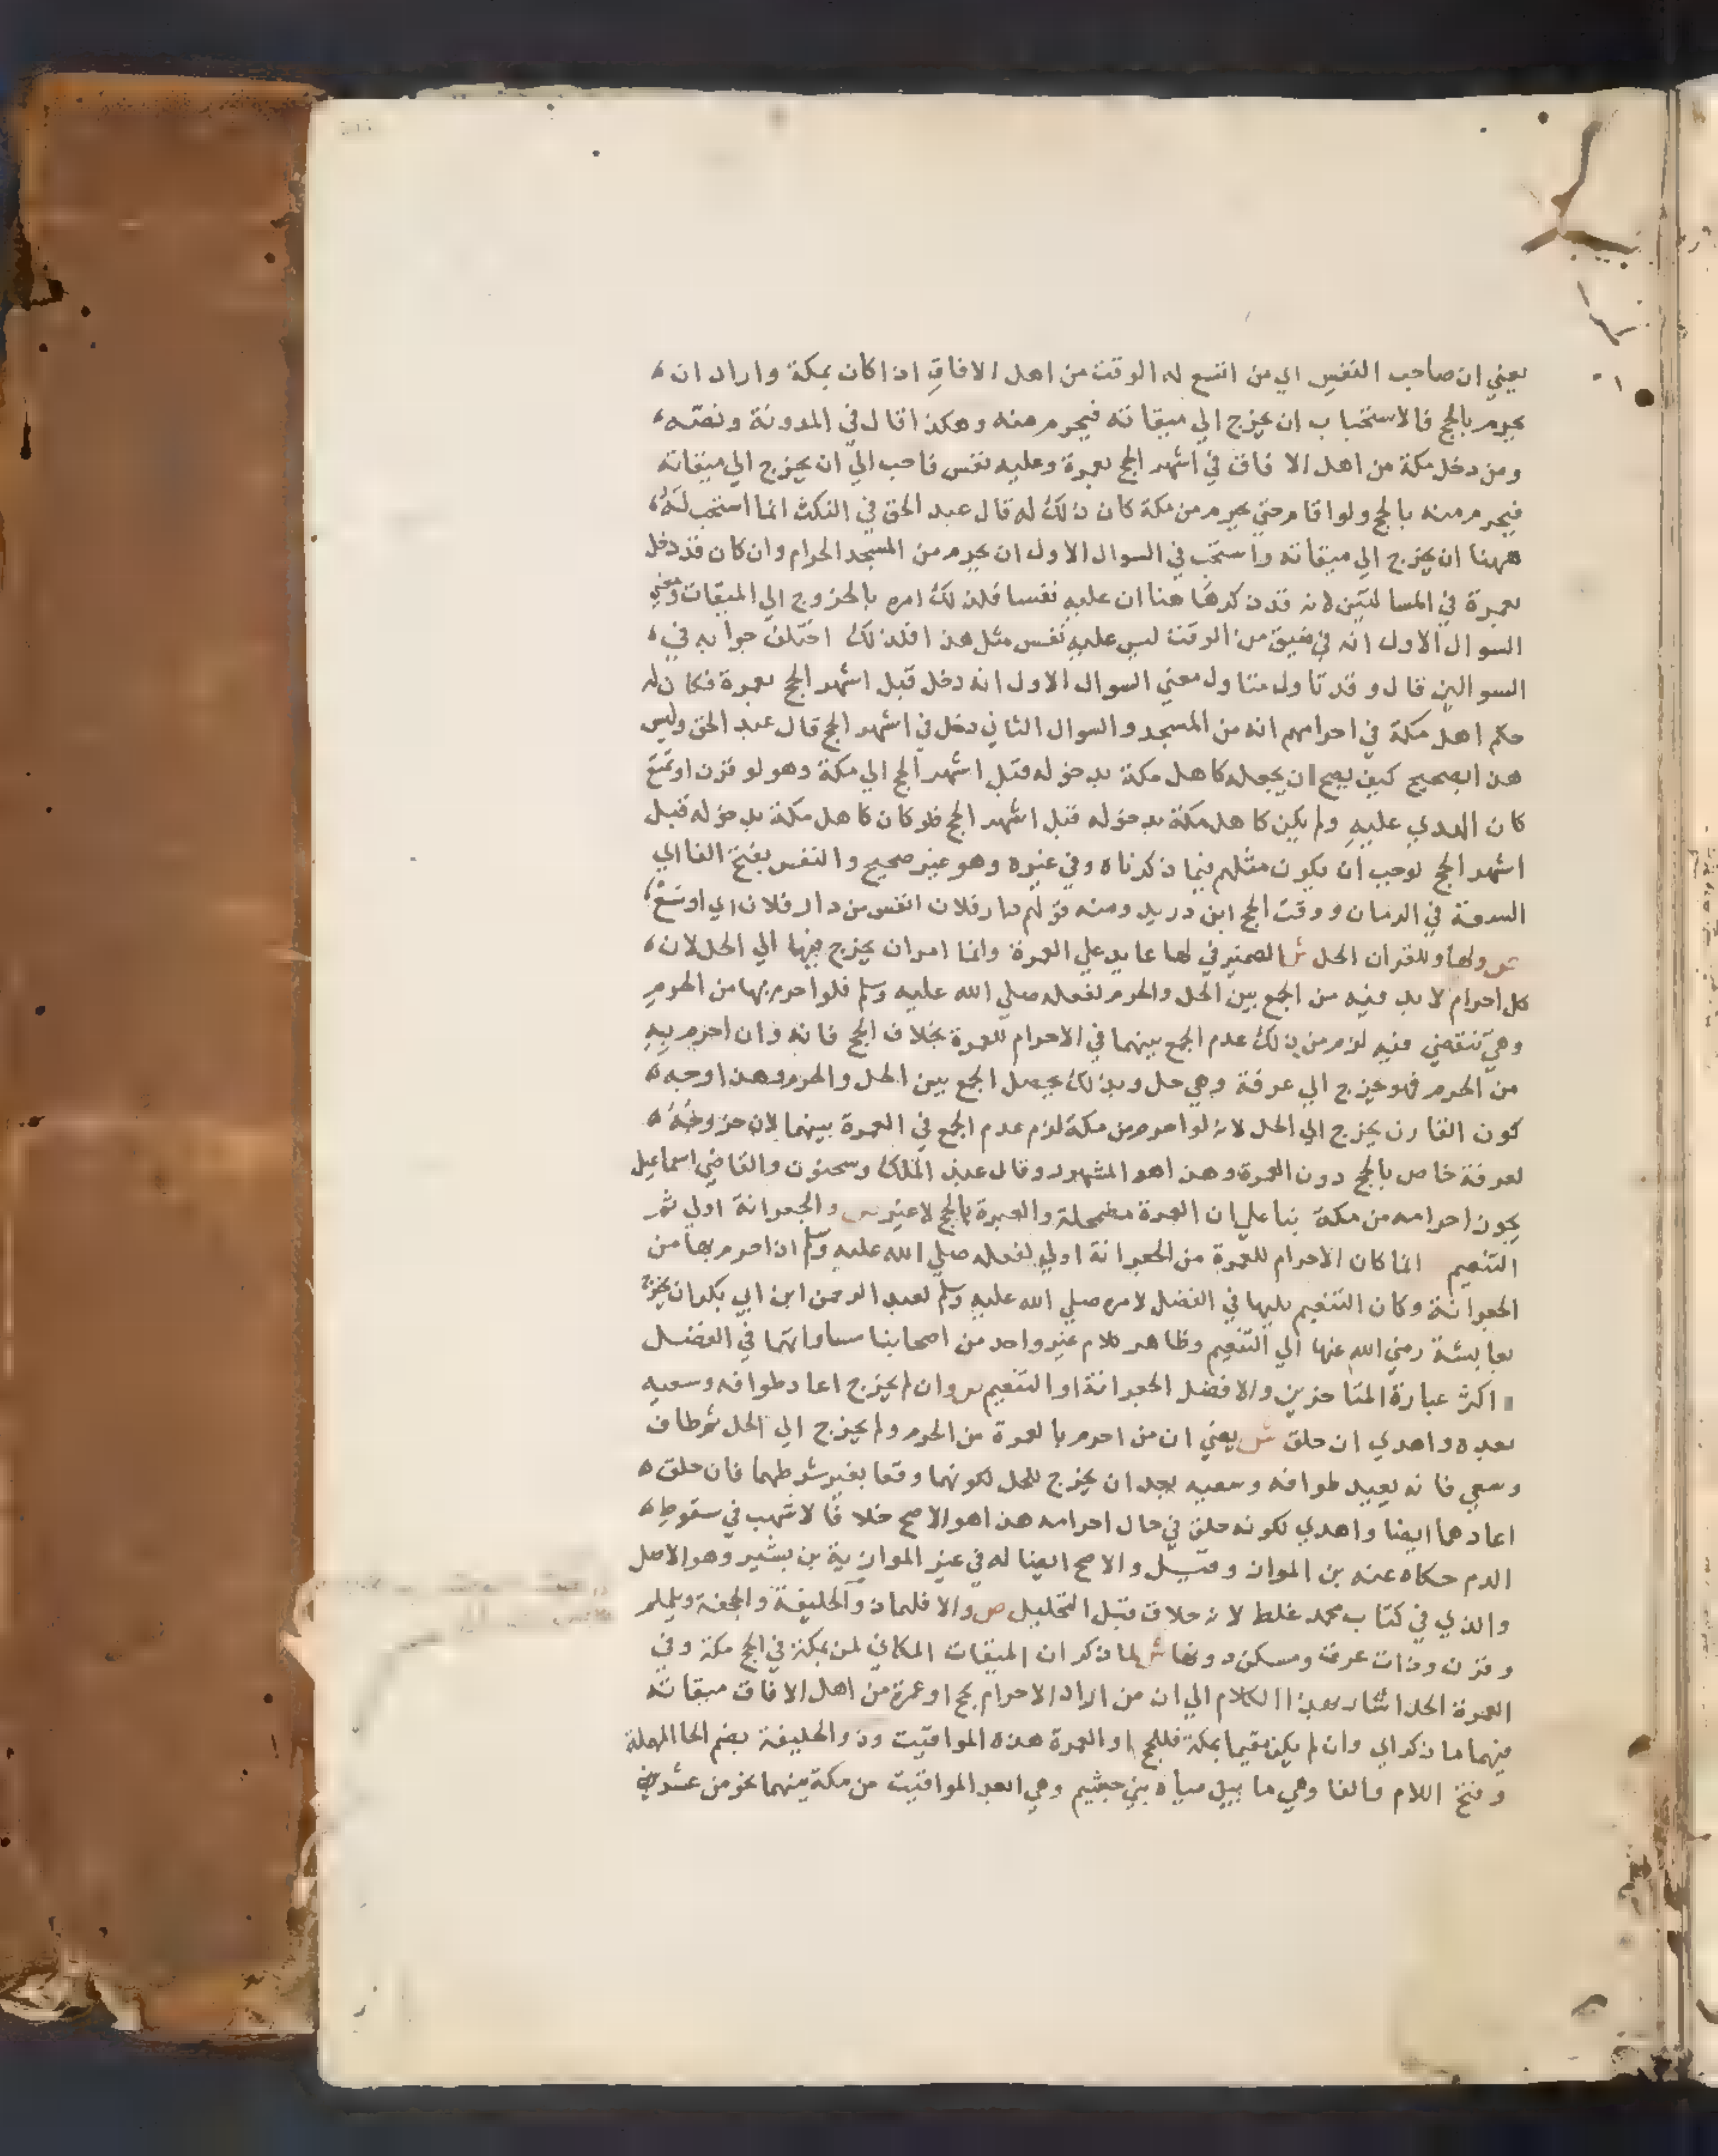 يعني ان صاحب النفس اي من اتسع له الوقت من اهل الافاق اذا كان بمكة واراد ان
يحرم بالحج فالاستحباب ان يخرج الي ميقاته فيحرم منه وهكذا قال في المدونة ونصه
ومن دخل مكة من اهل الافاق في اشهر الحج بعمرة وعليه نفس فاحب الي ان يخرج الي ميقاته
فيحرم منه بالحج ولو اقام حتي يحرم من مكة كان ذلك له قال عبد الحق في النكث انما استحب له
ههنا ان يخرج الي ميقاته واستحب في السوال الاول ان يحرم من المسجد الحرام وان كان قد دخل
بعمرة في المسالتين لانه قد ذكر هاهنا ان عليه نفسا فلذلك امره بالخروج الي الميقات ومعني
السوال الاول انه في ضيق من الوقت ليس عليه نفس مثل هذا فلذلك اختلف جوابه في
السوالين قال وقد تاول متاول معني السوال الاول انه دخل قبل اشهر الحج بعمرة فكان له
حكم اهل مكة في احرامهم انه من المسجد والسوال الثاني دخل في اشهر الحج قال عبد الحق وليس
هذا بصحيح كيف يصح ان يجعله كاهل مكة بدخوله قبل اشهر الحج الي مكة وهو لو قرن او تمتع
كان الهدي عليه ولم يكن كاهل مكة بدخوله قبل اشهر الحج فلو كان كاهل مكة بدخوله قبل
اشهر الحج لوجب ان يكون مثلهم فيما ذكرناه وفي غيره وهو غير صحيح والنفس بفتح الفا اي
السعة في الزمان ووقت الحج ابن دريد ومنه قولهم دار فلان انفس من دار فلان اي اوسع
ص ولها وللقران الحل ش الضمير في لها عايد علي العمرة وانما امر ان يخرج فيها الي الحل لان
كل احرام لا بد فيه من الجمع بين الحل والحرم لفعله صلي الله عليه وسلم فلو احرم بها من الحرم
وهي تنقضي فيه لزم من ذلك عدم الجمع بينهما في الاحرام للعمرة بخلاف الحج فانه وان احرم به
من الحرم فهو يخرج الي عرفة وهي حل وبذلك يحصل الجمع بين الحل والحرم وهذا وجه
كون القارن يخرج الي الحل لانه لو احرم من مكة لزم عدم الجمع في العمرة بينهما لان خروجه
لعرفة خاص بالحج دون العمرة وهذا هو المشهور وقال عبد الملك وسحنون والقاضي اسماعيل
يجوز احرامه من مكة بنا علي ان العمرة مضمحلة والعبرة بالحج لا غير ص والجعرانة اولي ثم
التنعيم انما كان الاحرام للعمرة من الجعرانة اولي لفعله صلي الله عليه وسلم اذ احرم بها من
الجعرانة وكان التنعيم يليها في الفضل لامره صلي الله عليه وسلم لعبد الرحمن ابن ابي بكر ان يخرج
بعايشة رضي الله عنها الي التنعيم وظاهر كلام غير واحد من اصحابنا مساواتهما في الفضل
اكثر عبارة المتاخرين والافضل الجعرانة او التنعيم ص وان لم يخرج اعاد طوافه وسعيه
بعده واهدي ان حلق ش يعني ان من احرم بالعمرة من الحرم ولم يخرج الي الحل ثم طاف
وسعي فانه يعيد طوافه وسعيه بعد ان يخرج للحل لكونهما وقعا بغير شرطهما فان حلق
اعادهما ايضا واهدي لكونه حلق في حال احرامه هذا هو الاصح خلافا لاشهب في سقوط
الدم حكاه عنه بن المواز وقيل والاصح ايضا له في غير الموازية بن بشير وهو الاصل
والذي في كتاب محمد غلط لانه حلاق قبل التحليل ص والا فلهما ذو الحليفة والجحفة ويلملم
وقرن وذات عرق ومسكن دونها ش لما ذكر ان الميقات المكاني لمن بمكة في الحج مكة وفي
العمرة الحل اشار بهذا الكلام الي ان من اراد الاحرام بحج او عمرة من اهل الافاق ميقاته
فيهما ما ذكر اي وان لم يكن مقيما بمكة فللحج او العمرة هذه المواقيت وذو الحليفة بضم الحا المهملة
وفتح اللام والفا وهي ما بين مياه بني جشيم وهي ابعد المواقيت من مكة بينهما نحو من عشر